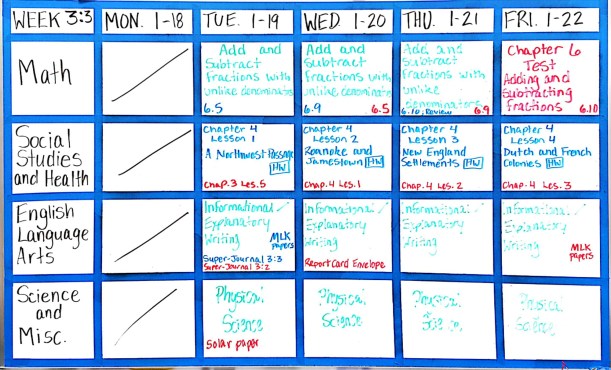 WEEK 3:3
MON. 1-18
TUE. 1-19
WED. 1-20
THU. 1-21
FRI. 1-22
Math
Add and
Subtract
Fractions with
unlike denominators
6.5
Add and
Subtract
Fractions with
unlike denominators
6.9 6.5
Add and
Subtract
Fractions with
unlike
denominators
6.10, Review 6.9
Chapter 6
Test
Adding and
Subtracting
Fractions 6.10
Social
Studies
and Health
Chapter 4
Lesson 1
A Northwest Passage
HW
Chap. 3 Les. 5
Chapter 4
Lesson 2
Roanoke and
Jamestown HW
Chap. 4 Les. 1
Chapter 4
Lesson 3
New England
Settlements HW
Chap. 4 Les. 2
Chapter 4
Lesson 4
Dutch and French
Colonies HW
Chap. 4 Les. 3
English
Language
Arts
Informational
Explanatory
Writing
MLK
papers
Super-Journal 3:3
Super-Journal 3:2
Informational
Explanatory
Writing
Report Card Envelope
Informational
Explanatory
Writing
Informational
Explanatory
Writing
MLK
papers
Science
and
Misc.
Physical
Science
Solar paper
Physical
Science
Physical
Science
Physical
Science